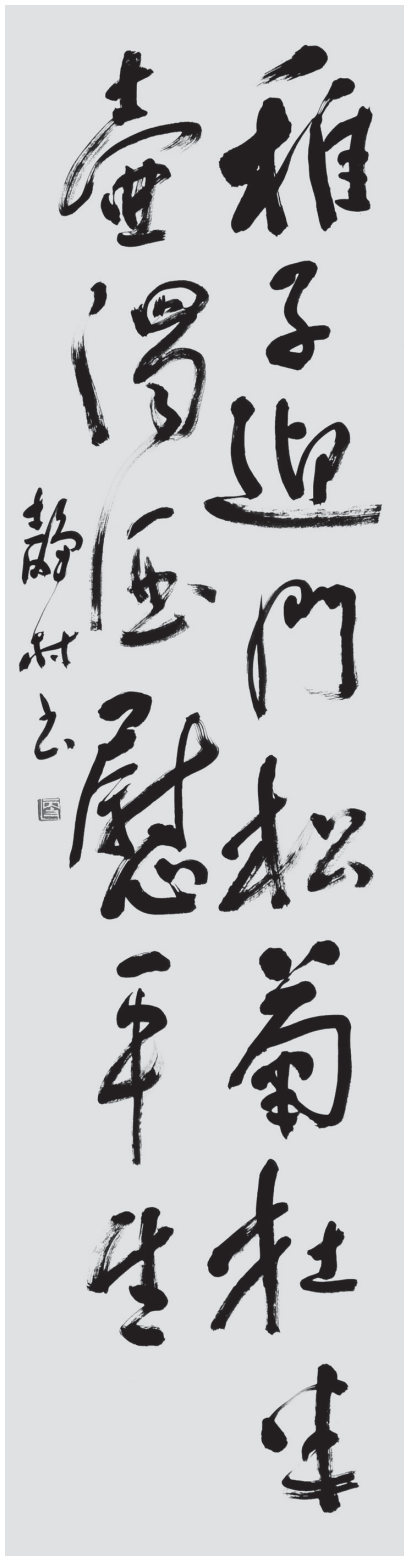 稚子迎門松菊在半
壺濁酒慰平生
靜村书